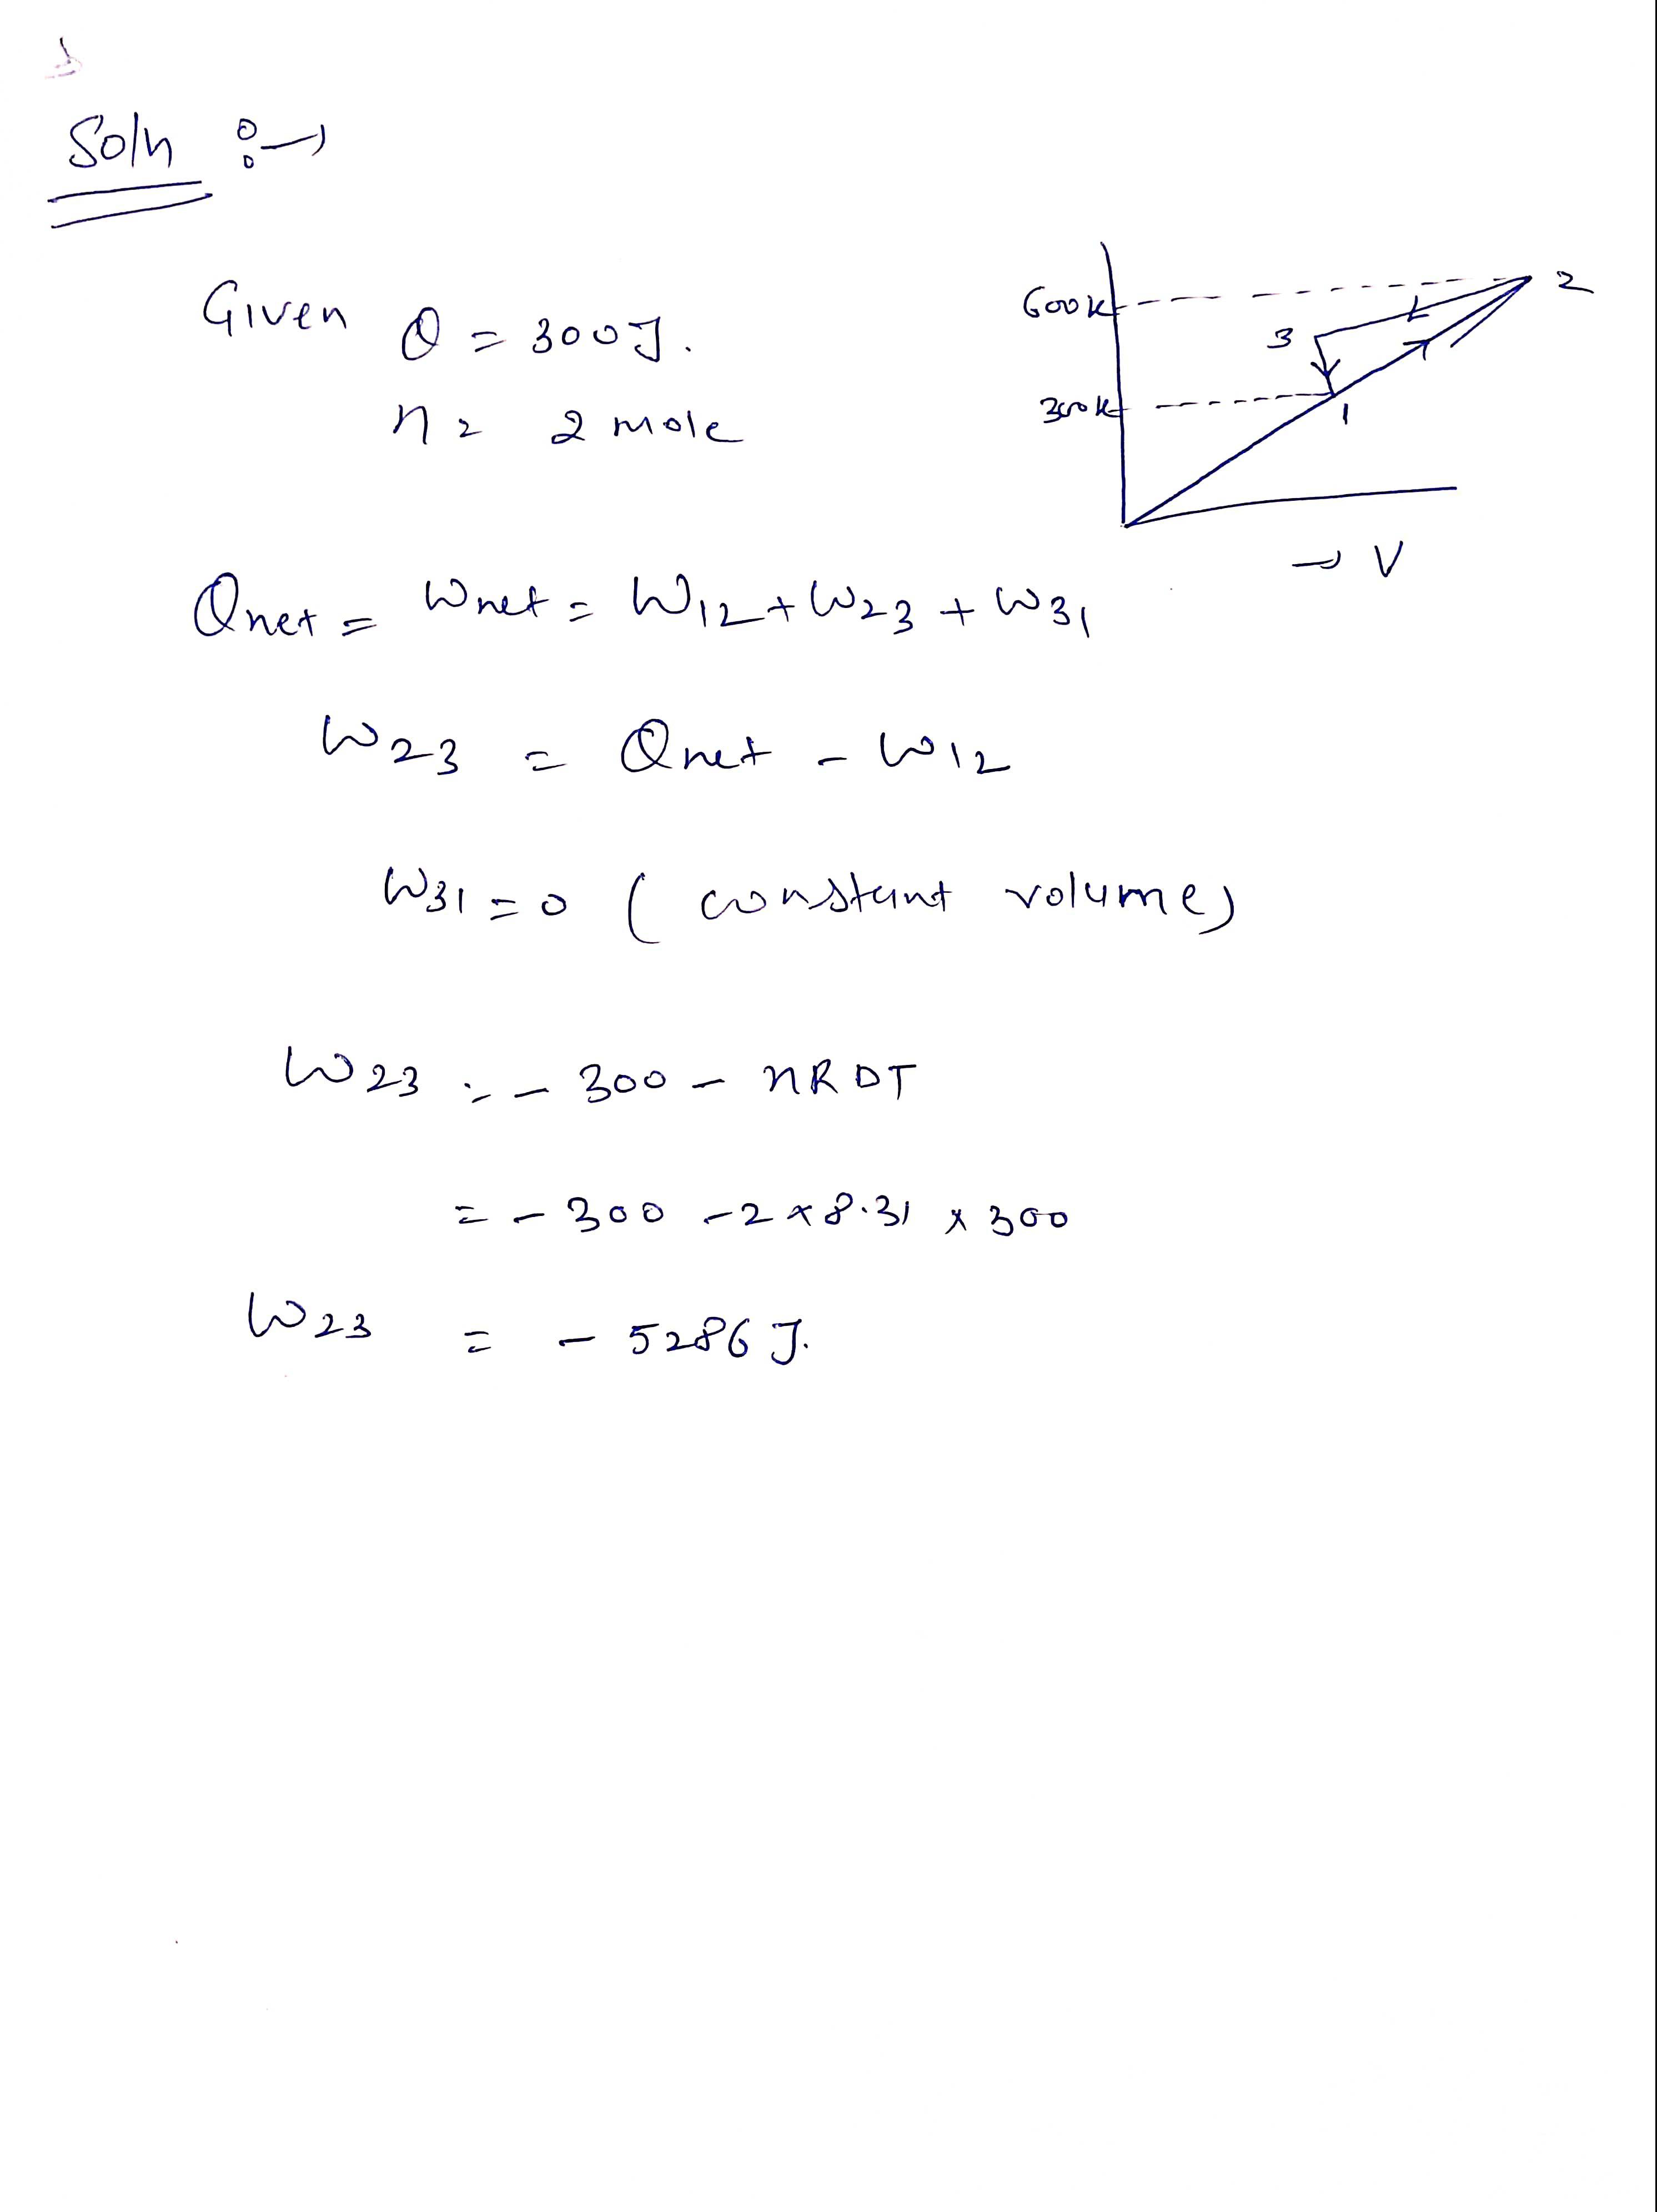 Soln :→
Given Q = 300J.
n = 2 mole
600K
2
3
300K
1
→ V
Qnet = Wnet = W12 + W23 + W31
W23 = Qnet - W12
W31 = 0 ( constant volume)
W23 = - 300 - nRDT
= - 300 - 2 x 8.31 x 300
W23 = - 5286 J.